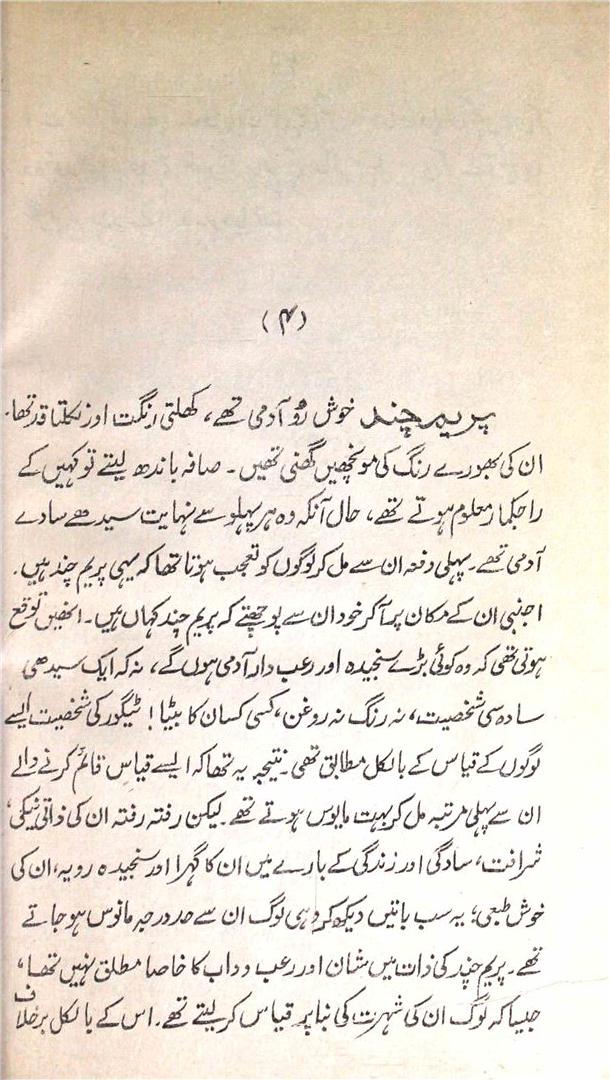 (۴)
پریم چند خوش رُو آدمی تھے، کھلتی رنگت اور نکلتا قد تھا۔
ان کی بھورے رنگ کی مونچھیں گھنی تھیں۔ صافہ باندھ لیتے تو کہیں کے
راجکمار معلوم ہوتے تھے، حال آنکہ وہ ہر پہلو سے نہایت سیدھے سادے
آدمی تھے۔ پہلی دفعہ ان سے مل کر لوگوں کو تعجب ہوتا تھا کہ یہی پریم چند ہیں۔
اجنبی ان کے مکان پر آ کر خود ان سے پوچھتے کہ پریم چند کہاں ہیں۔ انھیں توقع
ہوتی تھی کہ وہ کوئی بڑے سنجیدہ اور رعب دار آدمی ہوں گے، نہ کہ ایک سیدھی
سادہ سی شخصیت، نہ رنگ نہ روغن، کسی کسان کا بیٹا! ٹیگور کی شخصیت ایسے
لوگوں کے قیاس کے بالکل مطابق تھی۔ نتیجہ یہ تھا کہ ایسے قیاس قائم کرنے والے
ان سے پہلی مرتبہ مل کر بہت مایوس ہوتے تھے۔ لیکن رفتہ رفتہ ان کی ذاتی نیکی،
شرافت، سادگی اور زندگی کے بارے میں ان کا گہرا اور سنجیدہ رویہ، ان کی
خوش طبعی؛ یہ سب باتیں دیکھ کر وہی لوگ ان سے حد درجہ مانوس ہو جاتے
تھے۔ پریم چند کی ذات میں شان اور رعب و داب کا خاصا مطلق نہیں تھا،
جیسا کہ لوگ ان کی شہرت کی بنا پر قیاس کر لیتے تھے۔ اس کے بالکل برخلاف